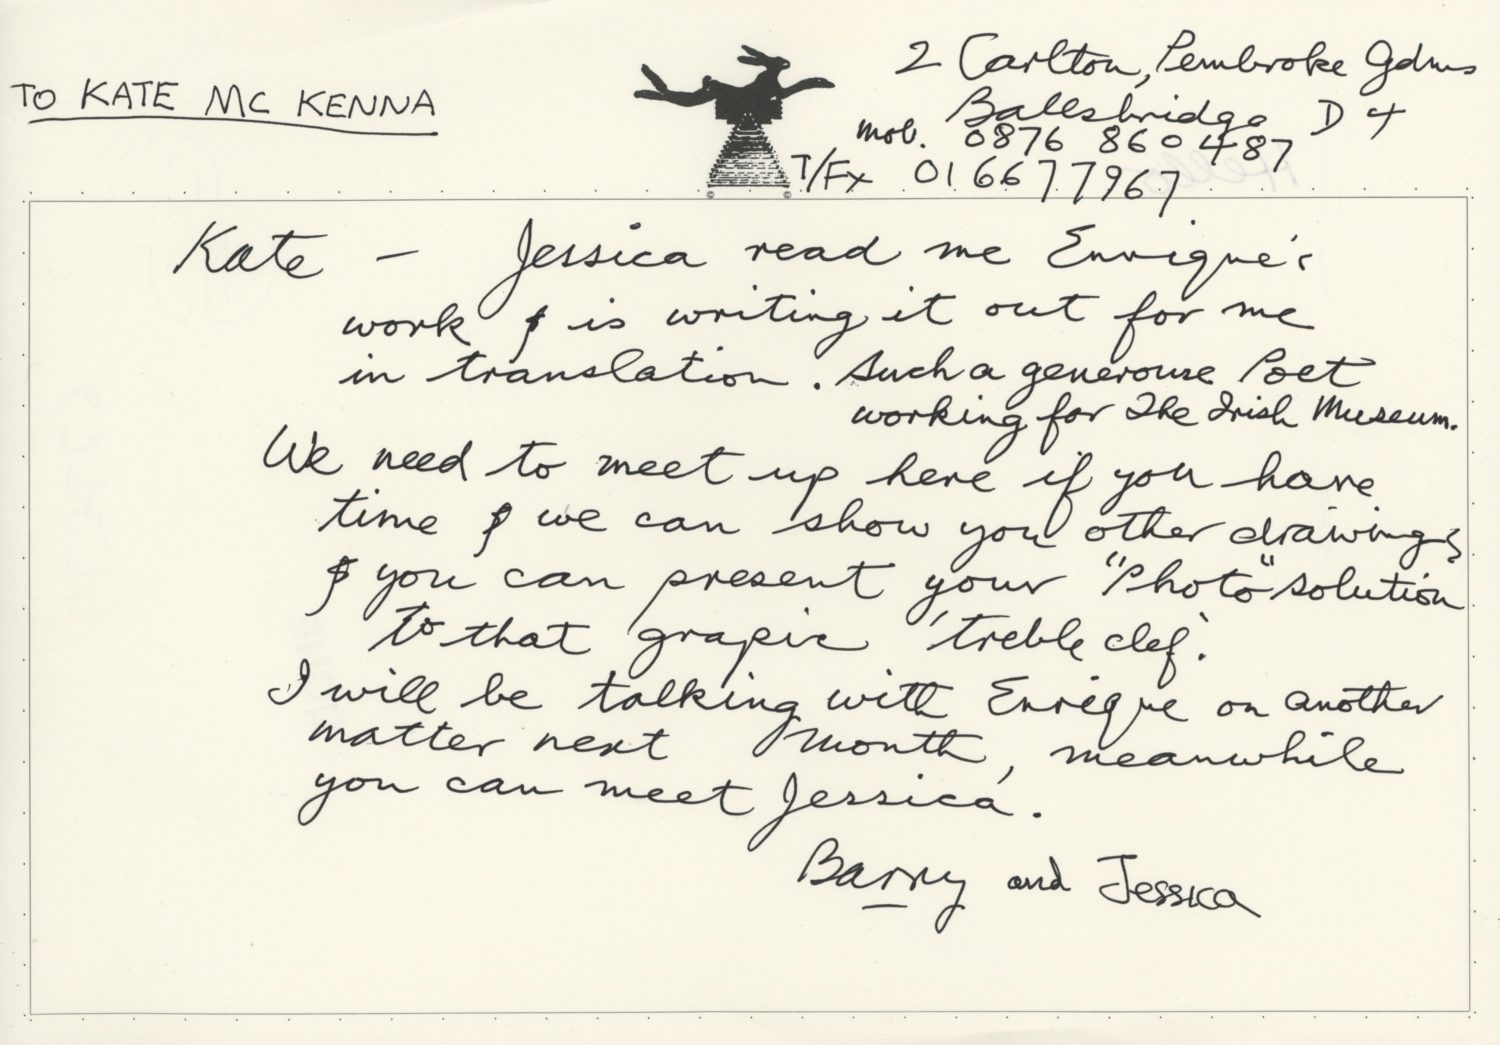 TO KATE MC KENNA
2 Carlton, Pembroke Gdns
Ballsbridge D 4
mob. 0876 860487
T/Fx 016677967
Kate – Jessica read me Enrique's
work & is writing it out for me
in translation. Such a generouse Poet
working for The Irish Museum.
We need to meet up here if you have
time & we can show you other drawings
& you can present your "Photo" solution
to that grapic 'treble clef'.
I will be talking with Enrique on another
matter next month, meanwhile
you can meet Jessica.
Barry and Jessica